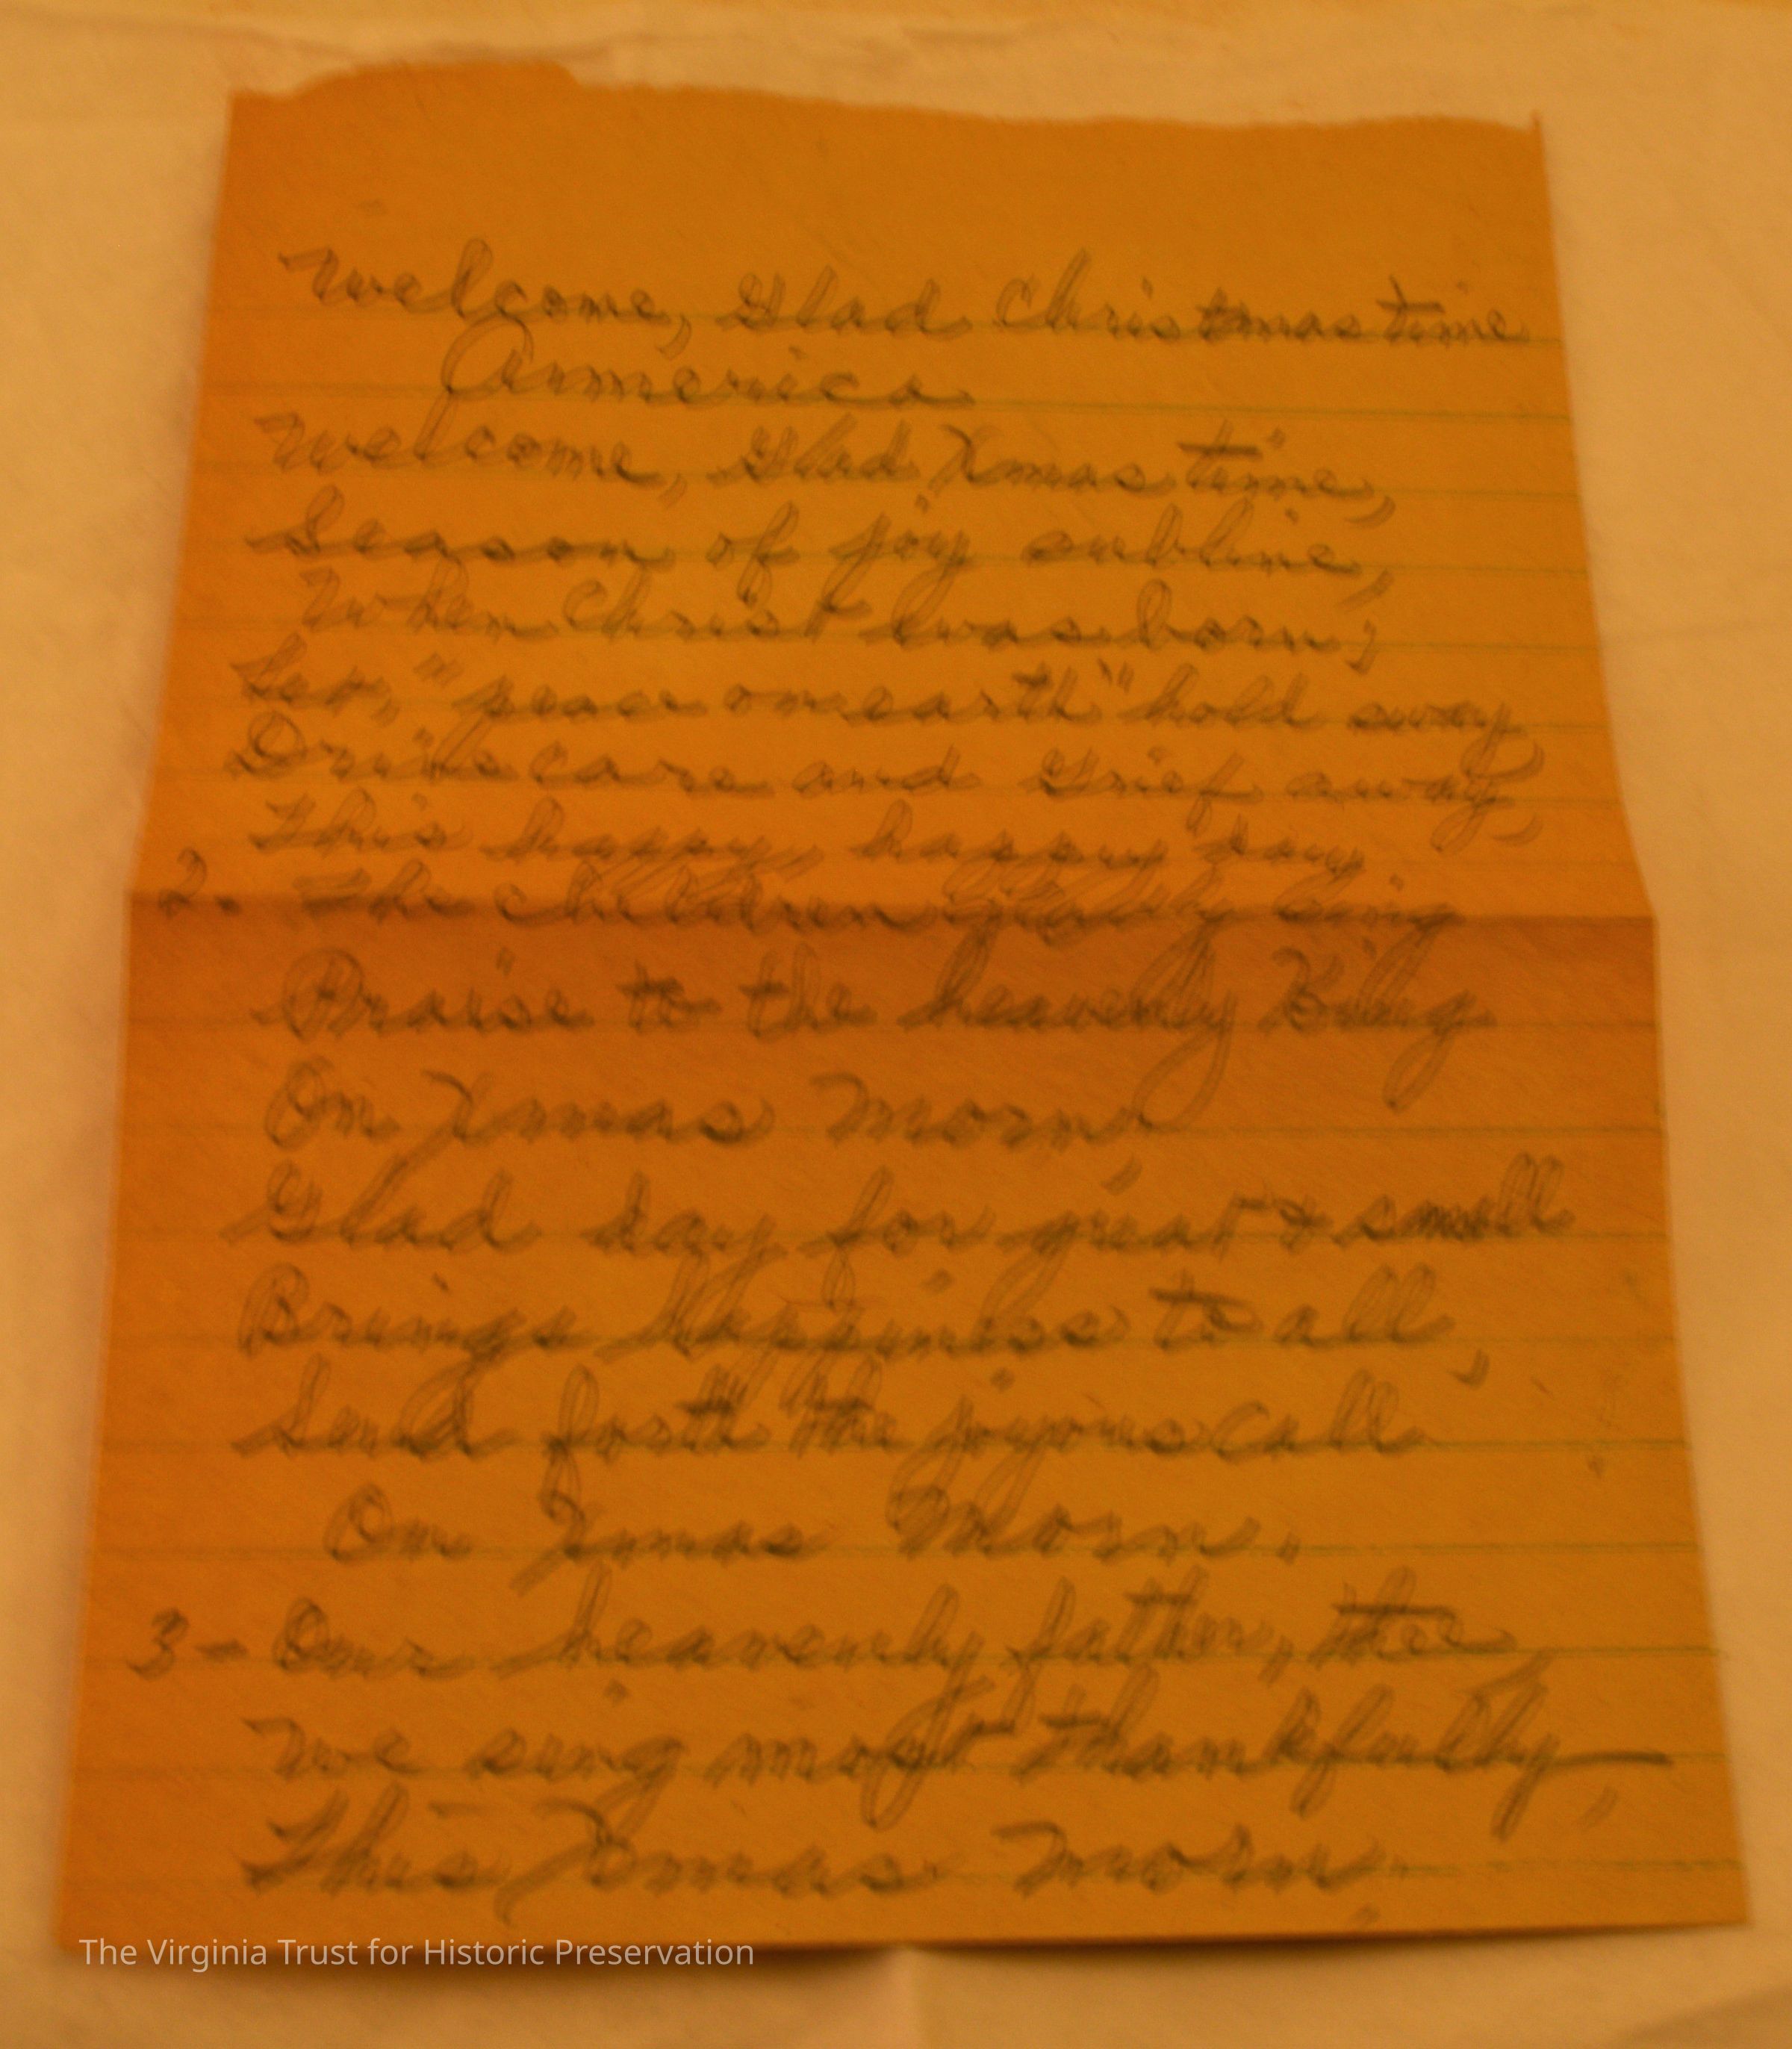 Welcome, Glad Christmas time
America
Welcome, Glad Xmas time,
Season of joy sublime,
When Christ was born;
Let, "peace on earth" hold sway
Drive care and Grief away,
This happy, happy day
2. The children gladly sing
Praise to the heavenly King
On Xmas Morn,
Glad day for great & small
Brings Happiness to all,
Send forth the joyous call
On Xmas Morn.
3- Our heavenly father, thee
We sing most thankfully,
This Xmas Morn.
The Virginia Trust for Historic Preservation